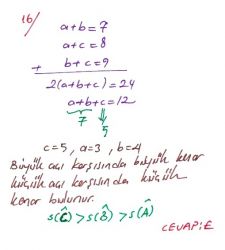 16/
a+b=7
a+c=8
+ b+c=9
2(a+b+c)=24
a+b+c=12
7 5
c=5, a=3, b=4
Büyük açı karşısında büyük kenar
küçük açı karşısında küçük
kenar bulunur.
s(Ĉ)>s(B̂)>s(Â)
CEVAP:E